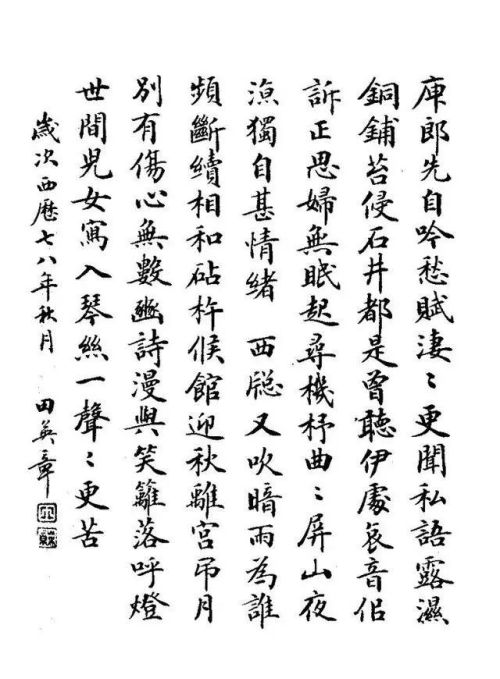 庾郎先自吟愁賦淒〻更聞私語露濕
銅鋪苔侵石井都是曾聽伊處哀音侣
訴正思婦無眠起尋機杼曲〻屏山夜
涼獨自甚情緒 西窗又吹暗雨為誰
頻斷續相和砧杵候館迎秋離宮吊月
別有傷心無數豳詩漫與笑籬落呼燈
世間兒女寫入琴絲一聲〻更苦
歲次西曆七八年秋月 田英章